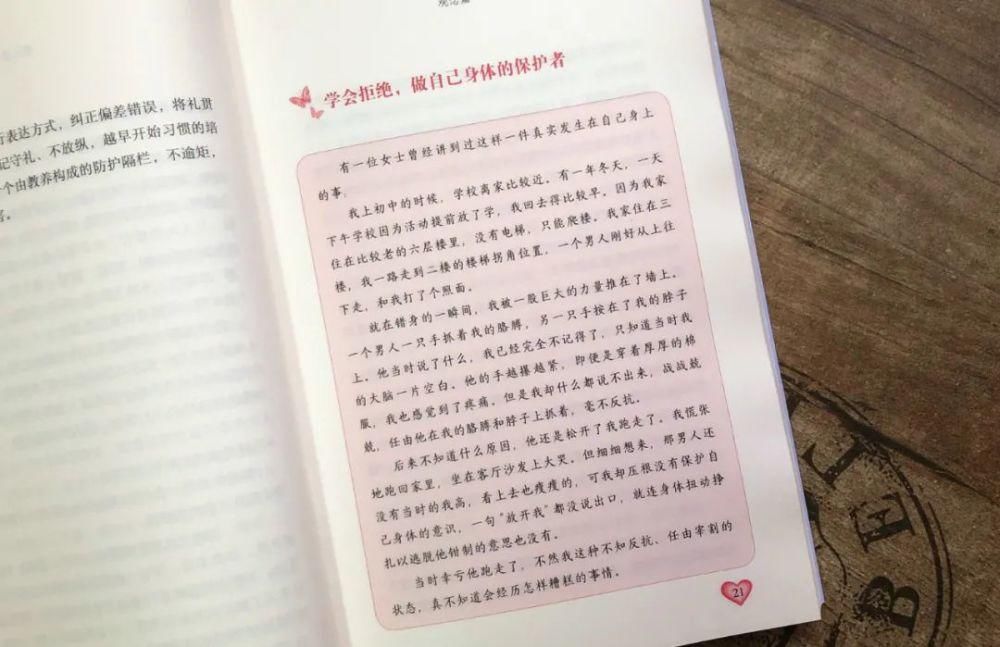 行表达方式，纠正偏差错误，将礼贯
记守礼、不放纵，越早开始习惯的培
个由教养构成的防护隔栏，不逾矩，
观念篇
学会拒绝，做自己身体的保护者
有一位女士曾经讲到过这样一件真实发生在自己身上
的事。
我上初中的时候，学校离家比较近。有一年冬天，一天
下午学校因为活动提前放了学，我回去得比较早。因为我家
住在比较老的六层楼里，没有电梯，只能爬楼。我家住在三
楼，我一路走到二楼的楼梯拐角位置，一个男人刚好从上往
下走，和我打了个照面。
就在错身的一瞬间，我被一股巨大的力量推在了墙上。
一个男人一只手抓着我的胳膊，另一只手按在了我的脖子
上。他当时说了什么，我已经完全不记得了，只知道当时我
的大脑一片空白。他的手越攥越紧，即便是穿着厚厚的棉
服，我也感觉到了疼痛。但是我却什么都说不出来，战战兢
兢，任由他在我的胳膊和脖子上抓着，毫不反抗。
后来不知道什么原因，他还是松开了我跑走了。我慌张
地跑回家里，坐在客厅沙发上大哭。但细细想来，那男人还
没有当时的我高，看上去也瘦瘦的，可我却压根没有保护自
己身体的意识，一句“放开我”都没说出口，就连身体扭动挣
扎以逃脱他钳制的意思也没有。
当时幸亏他跑走了，不然我这种不知反抗、任由宰割的
状态，真不知道会经历怎样糟糕的事情。
21
BE